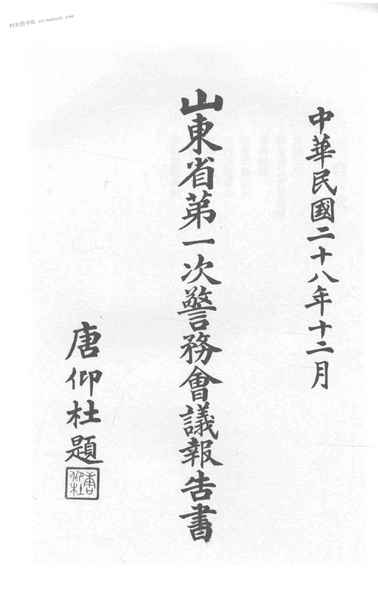 中華民國二十八年十二月
山東省第一次警務會議報告書
唐仰杜題
唐仰杜